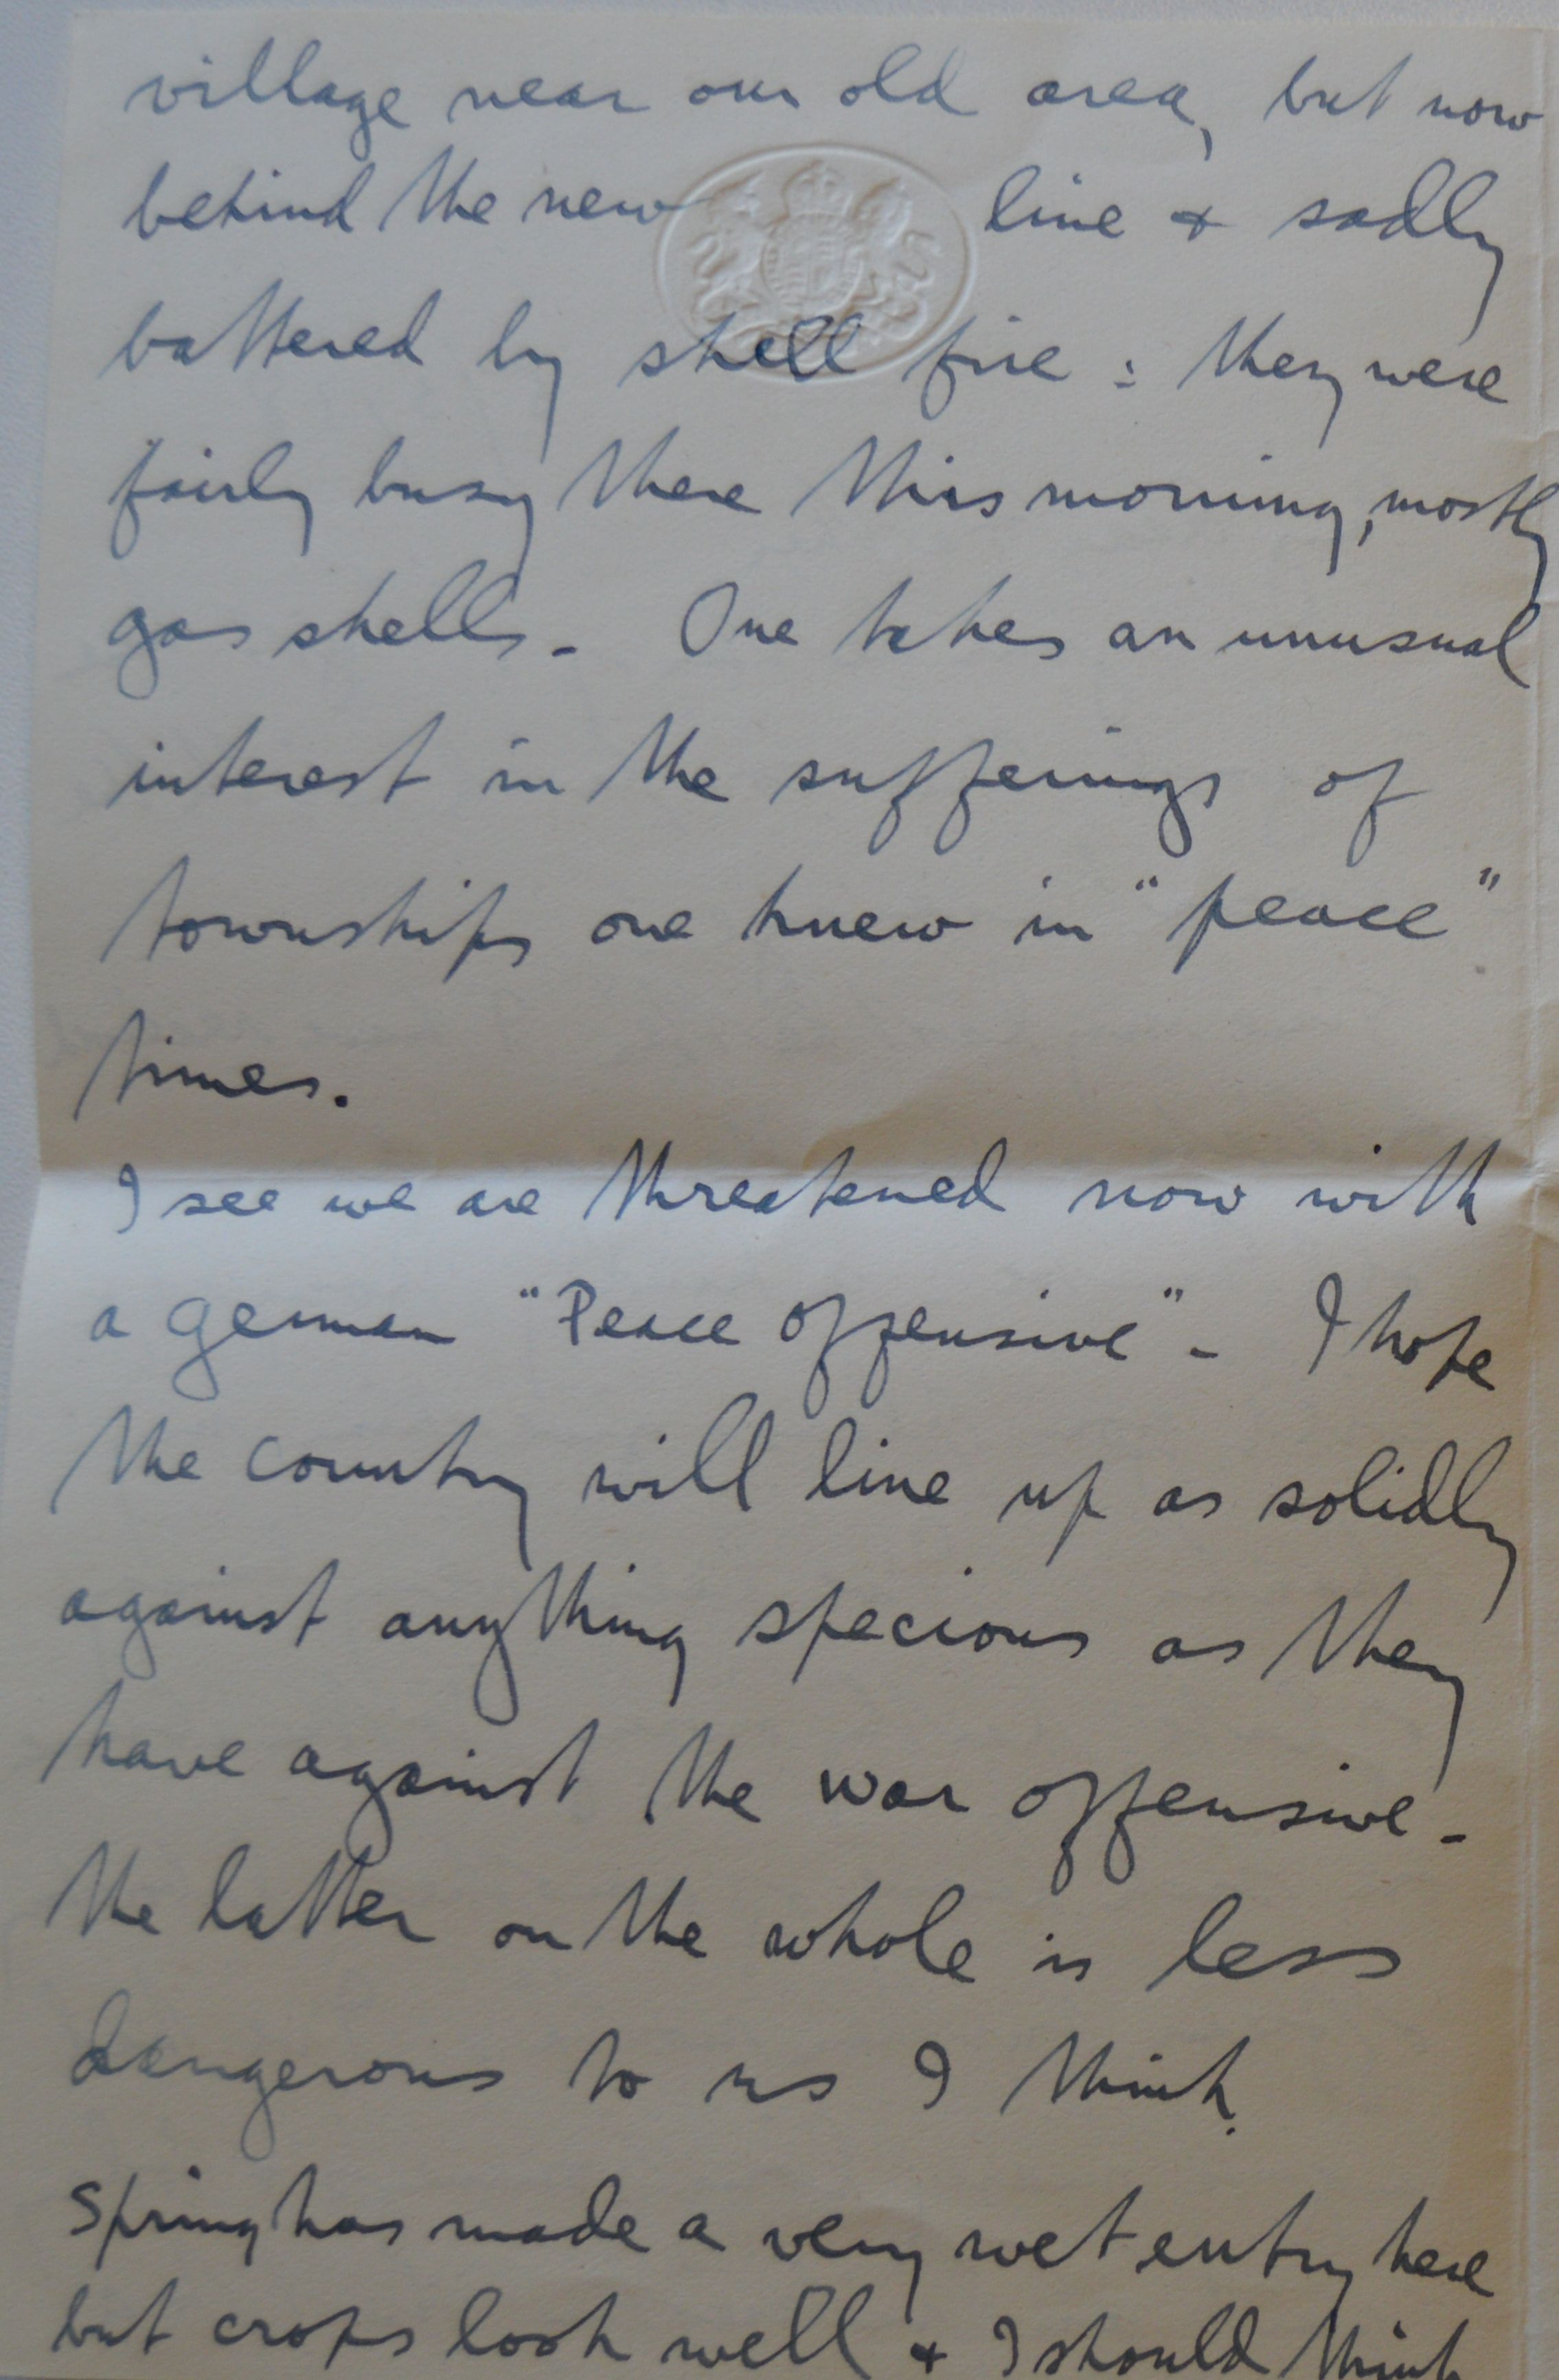 village near our old area, but now
behind the new line & sadly
battered by shell fire : they were
fairly busy there this morning, mostly
gas shells - One takes an unusual
interest in the sufferings of
townships one knew in "peace"
times.
I see we are threatened now with
a german "Peace offensive" - I hope
the country will line up as solidly
against anything specious as they
have against the war offensive -
the latter on the whole is less
dangerous to us I think.
Spring has made a very wet entry here
but crops look well & I should think